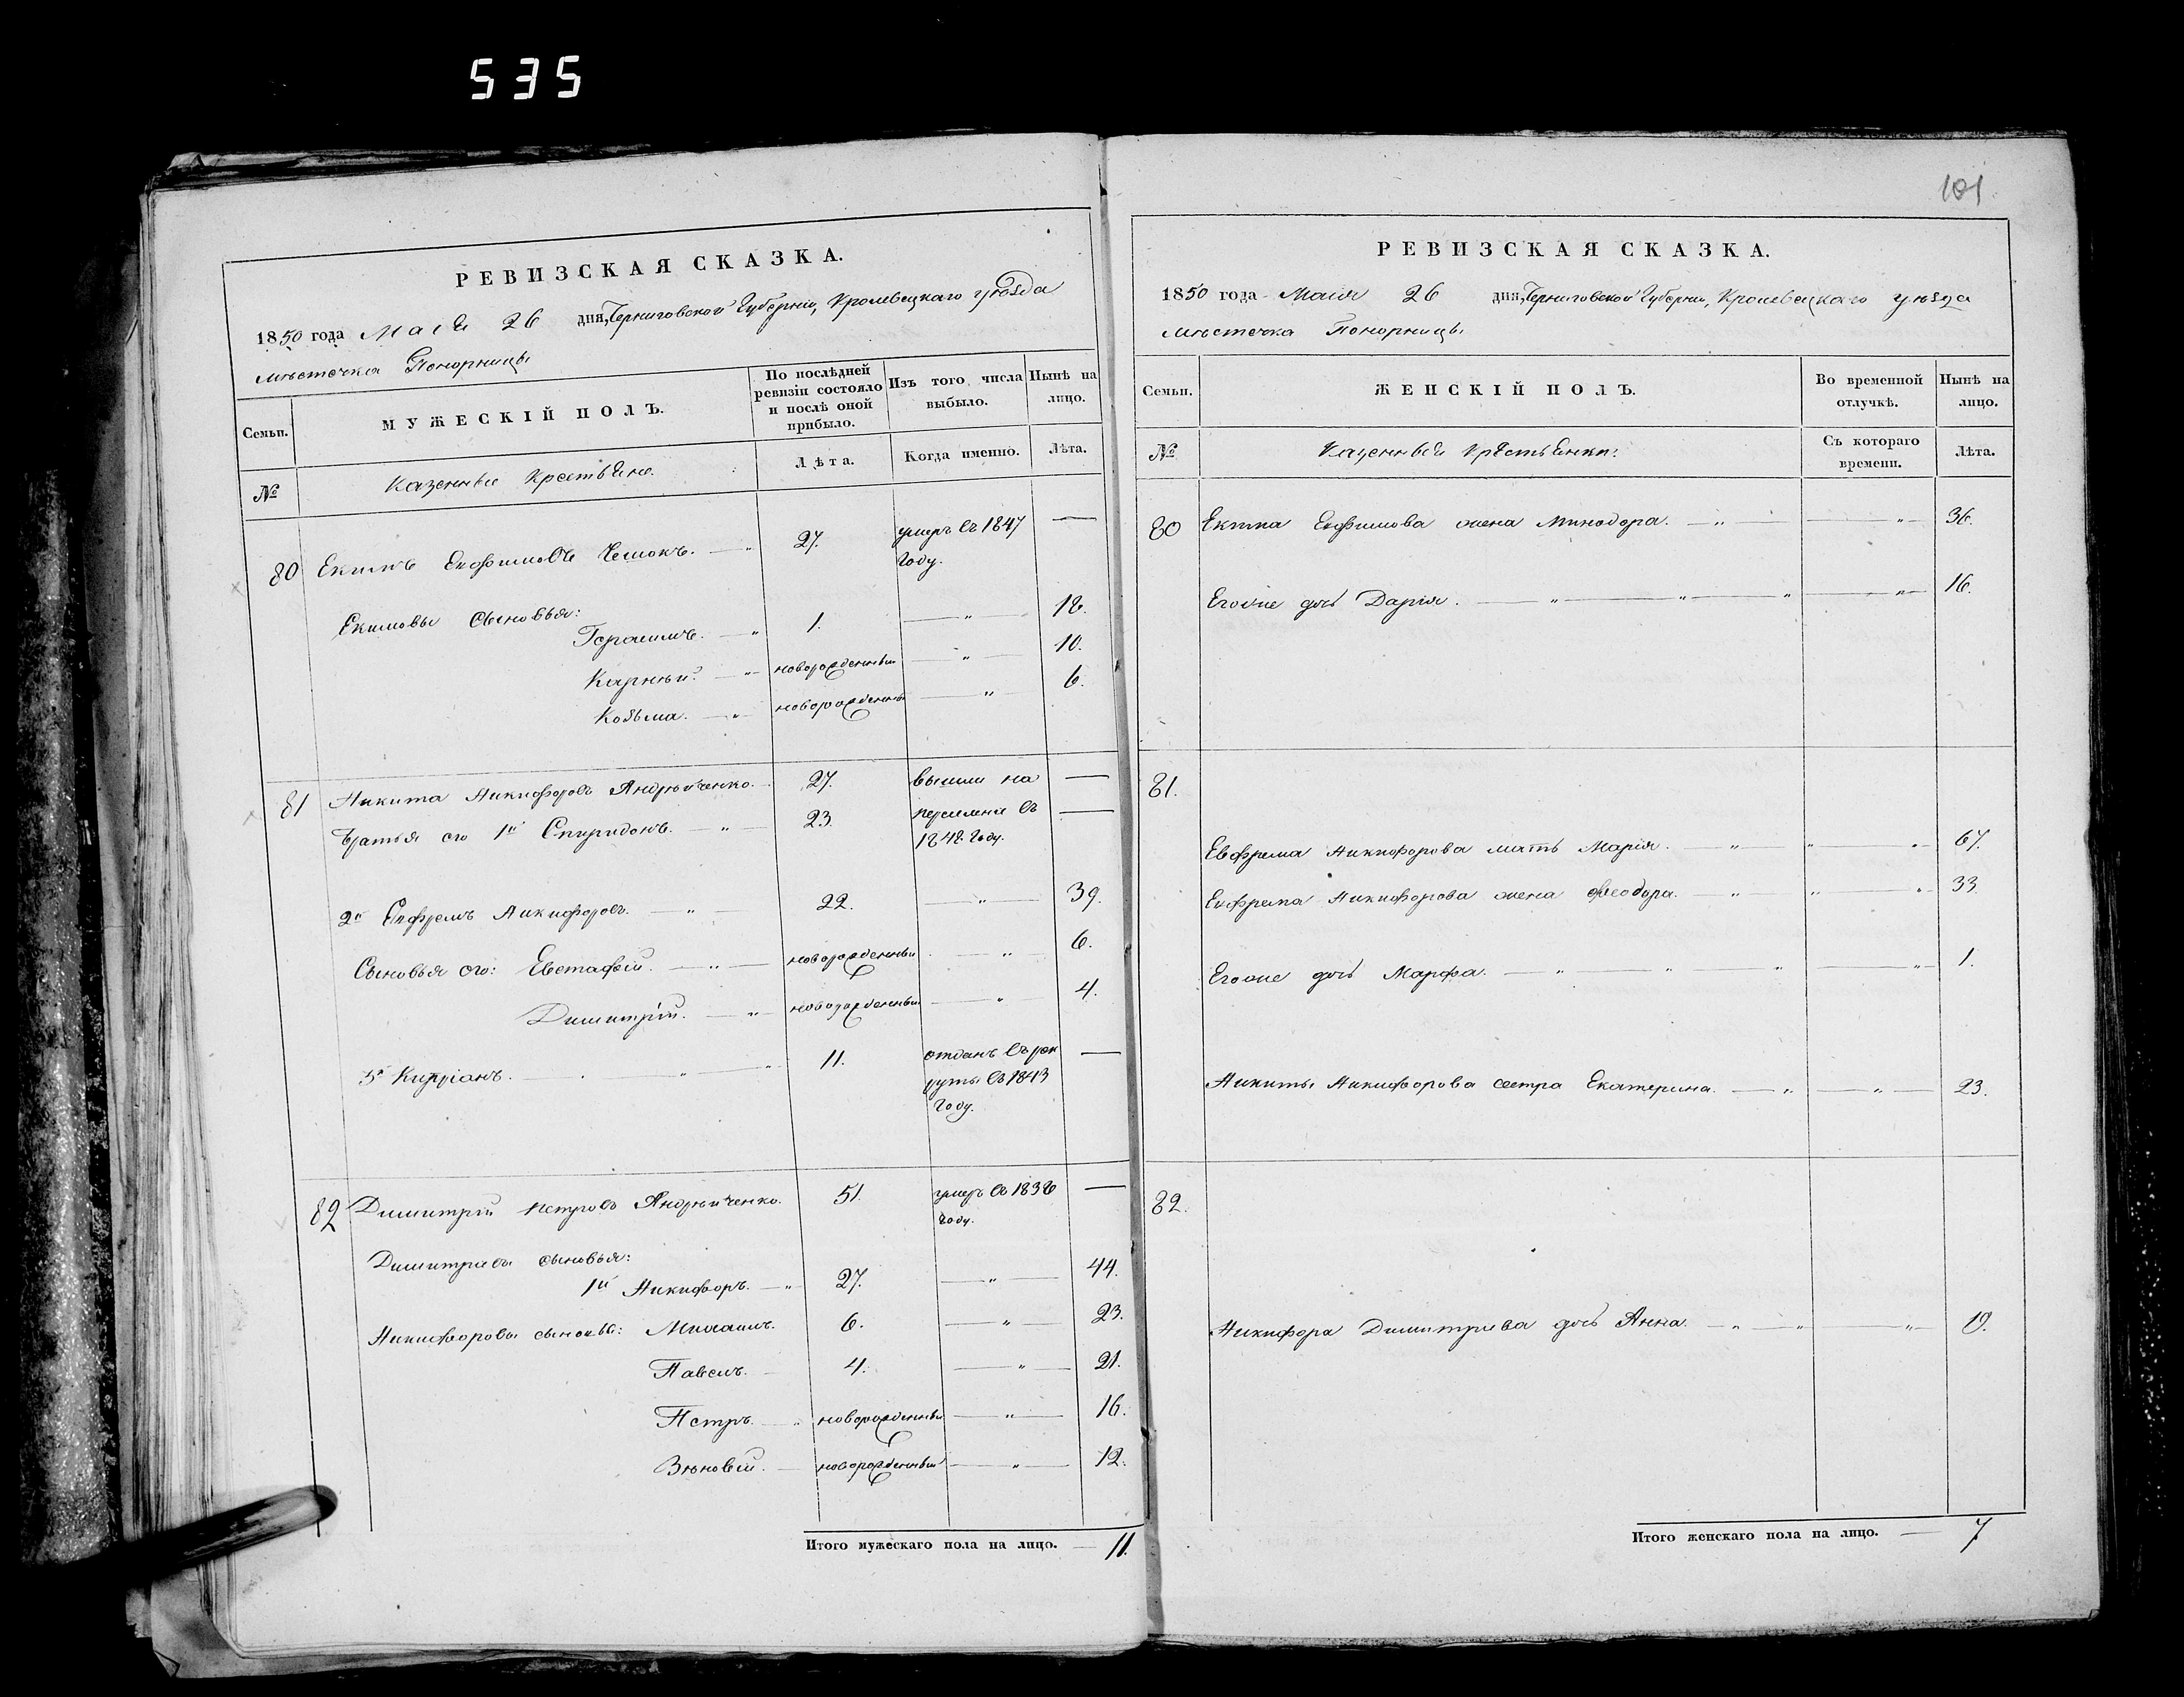 535
РЕВИЗСКАЯ СКАЗКА.
1850 года Маія 26 дня, Черниговской Губерніи, Кролевецкаго уѣзда
мѣстечка Понорницы
Семьи.
МУЖЕСКІЙ ПОЛЪ.
По послѣдней ревизіи состояло и послѣ оной прибыло.
Изъ того числа выбыло.
Нынѣ на лицо.
№
Казенные Крестьяне.
Лѣта.
Когда именно.
Лѣта.
80 Екимъ Евфимовъ 27. умеръ въ 1847 —
году.
Екимовы сыновья:
Герасимъ. — „ 1. — „ — 18.
Карнѣй. — „ новорожденный — „ — 10.
Козьма. — „ новорожденный — „ — 6.
81 Никита Никифоровъ Андрѣйченко. 27. вышли на —
братья его 1й Спиридонъ. — „ — 23. переселеніе въ —
1848. году.
2й Евфремъ Никифоровъ. — „ — 22. — „ — 39.
Сыновья его: Евстафій. — „ — новорожденный — „ — 6.
Димитрій. — „ — новорожденный — „ — 4.
3й Кипріанъ. — „ — „ 11. отданъ въ рек —
руты въ 1843
году.
82 Димитрій Петровъ Андрѣйченко. 51. умеръ въ 1838 —
году.
Димитріевы сыновья:
1й Никифоръ. — „ 27. — „ — 44.
Никифоровы сыновья: Михаилъ. 6. — „ — 23.
Павелъ. — 4. — „ — 21.
Петръ. — „ новорожденный — „ — 16.
Зѣновій. — новорожденный — „ — 12.
Итого мужескаго пола на лицо. — 11.
101
РЕВИЗСКАЯ СКАЗКА.
1850 года Маія 26 дня, Черниговской Губерніи, Кролевецкаго уѣзда
мѣстечка Понорницы
Семьи.
ЖЕНСКІЙ ПОЛЪ.
Во временной отлучкѣ.
Нынѣ на лицо.
№
Казенныя Крестьянки:
Съ котораго времени.
Лѣта.
80 Екима Евфимова жена Минодора. — „ — „ — 36.
Егоже дочь Дарія. — „ — „ — „ — „ — 16.
81.
Евфрема Никифорова мать Марія. — „ — „ „ — 67.
Евфрема Никифорова жена Феодора. — „ — „ — „ 33
Егоже дочь Марфа. — „ — „ „ — „ — 1.
Никиты Никифорова сестра Екатерина. — „ — „ — 23.
82.
Никифора Димитріева дочь Анна. — „ — „ — „ — 9.
Итого женскаго пола на лицо. — 7